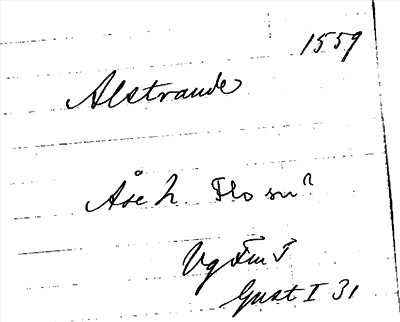 1559
Alstrande
Åse h. Flo sn?
Vg
Gust I 31